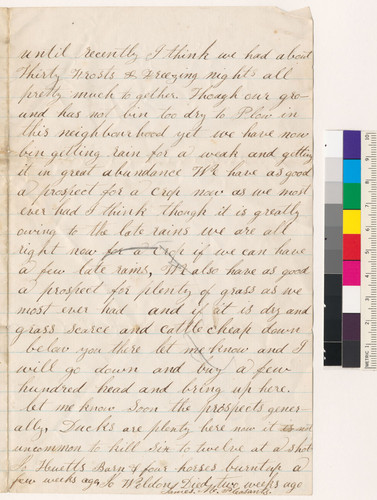 until recently I think we had about
Thirty Frosts & Freezing nights all
pretty much to gether. Though our gro-
und has not bin too dry to Plow in
this neighbourhood yet we have now
ben getting rain for a weak and getting
it in great abundance We have as good
a prospect for a crop now as we most
ever had I think though it is greatly
owing to the late rains we are all
right now for a crop if we can have
a few late rains, We also have as good
a prospect for plenty of grass as we
most ever had and if it is dry and
grass scarce and cattle cheap down
below you there let me know and I
will go down and buy a few
hundred head and bring up here.
let me know Soon the prospects gener-
ally, Ducks are plenty here now it is not
uncommon to kill Six to twelve at a shot
Barn & four horses burnt up a
few weeks ago, Weldon Died two weeks ago
James